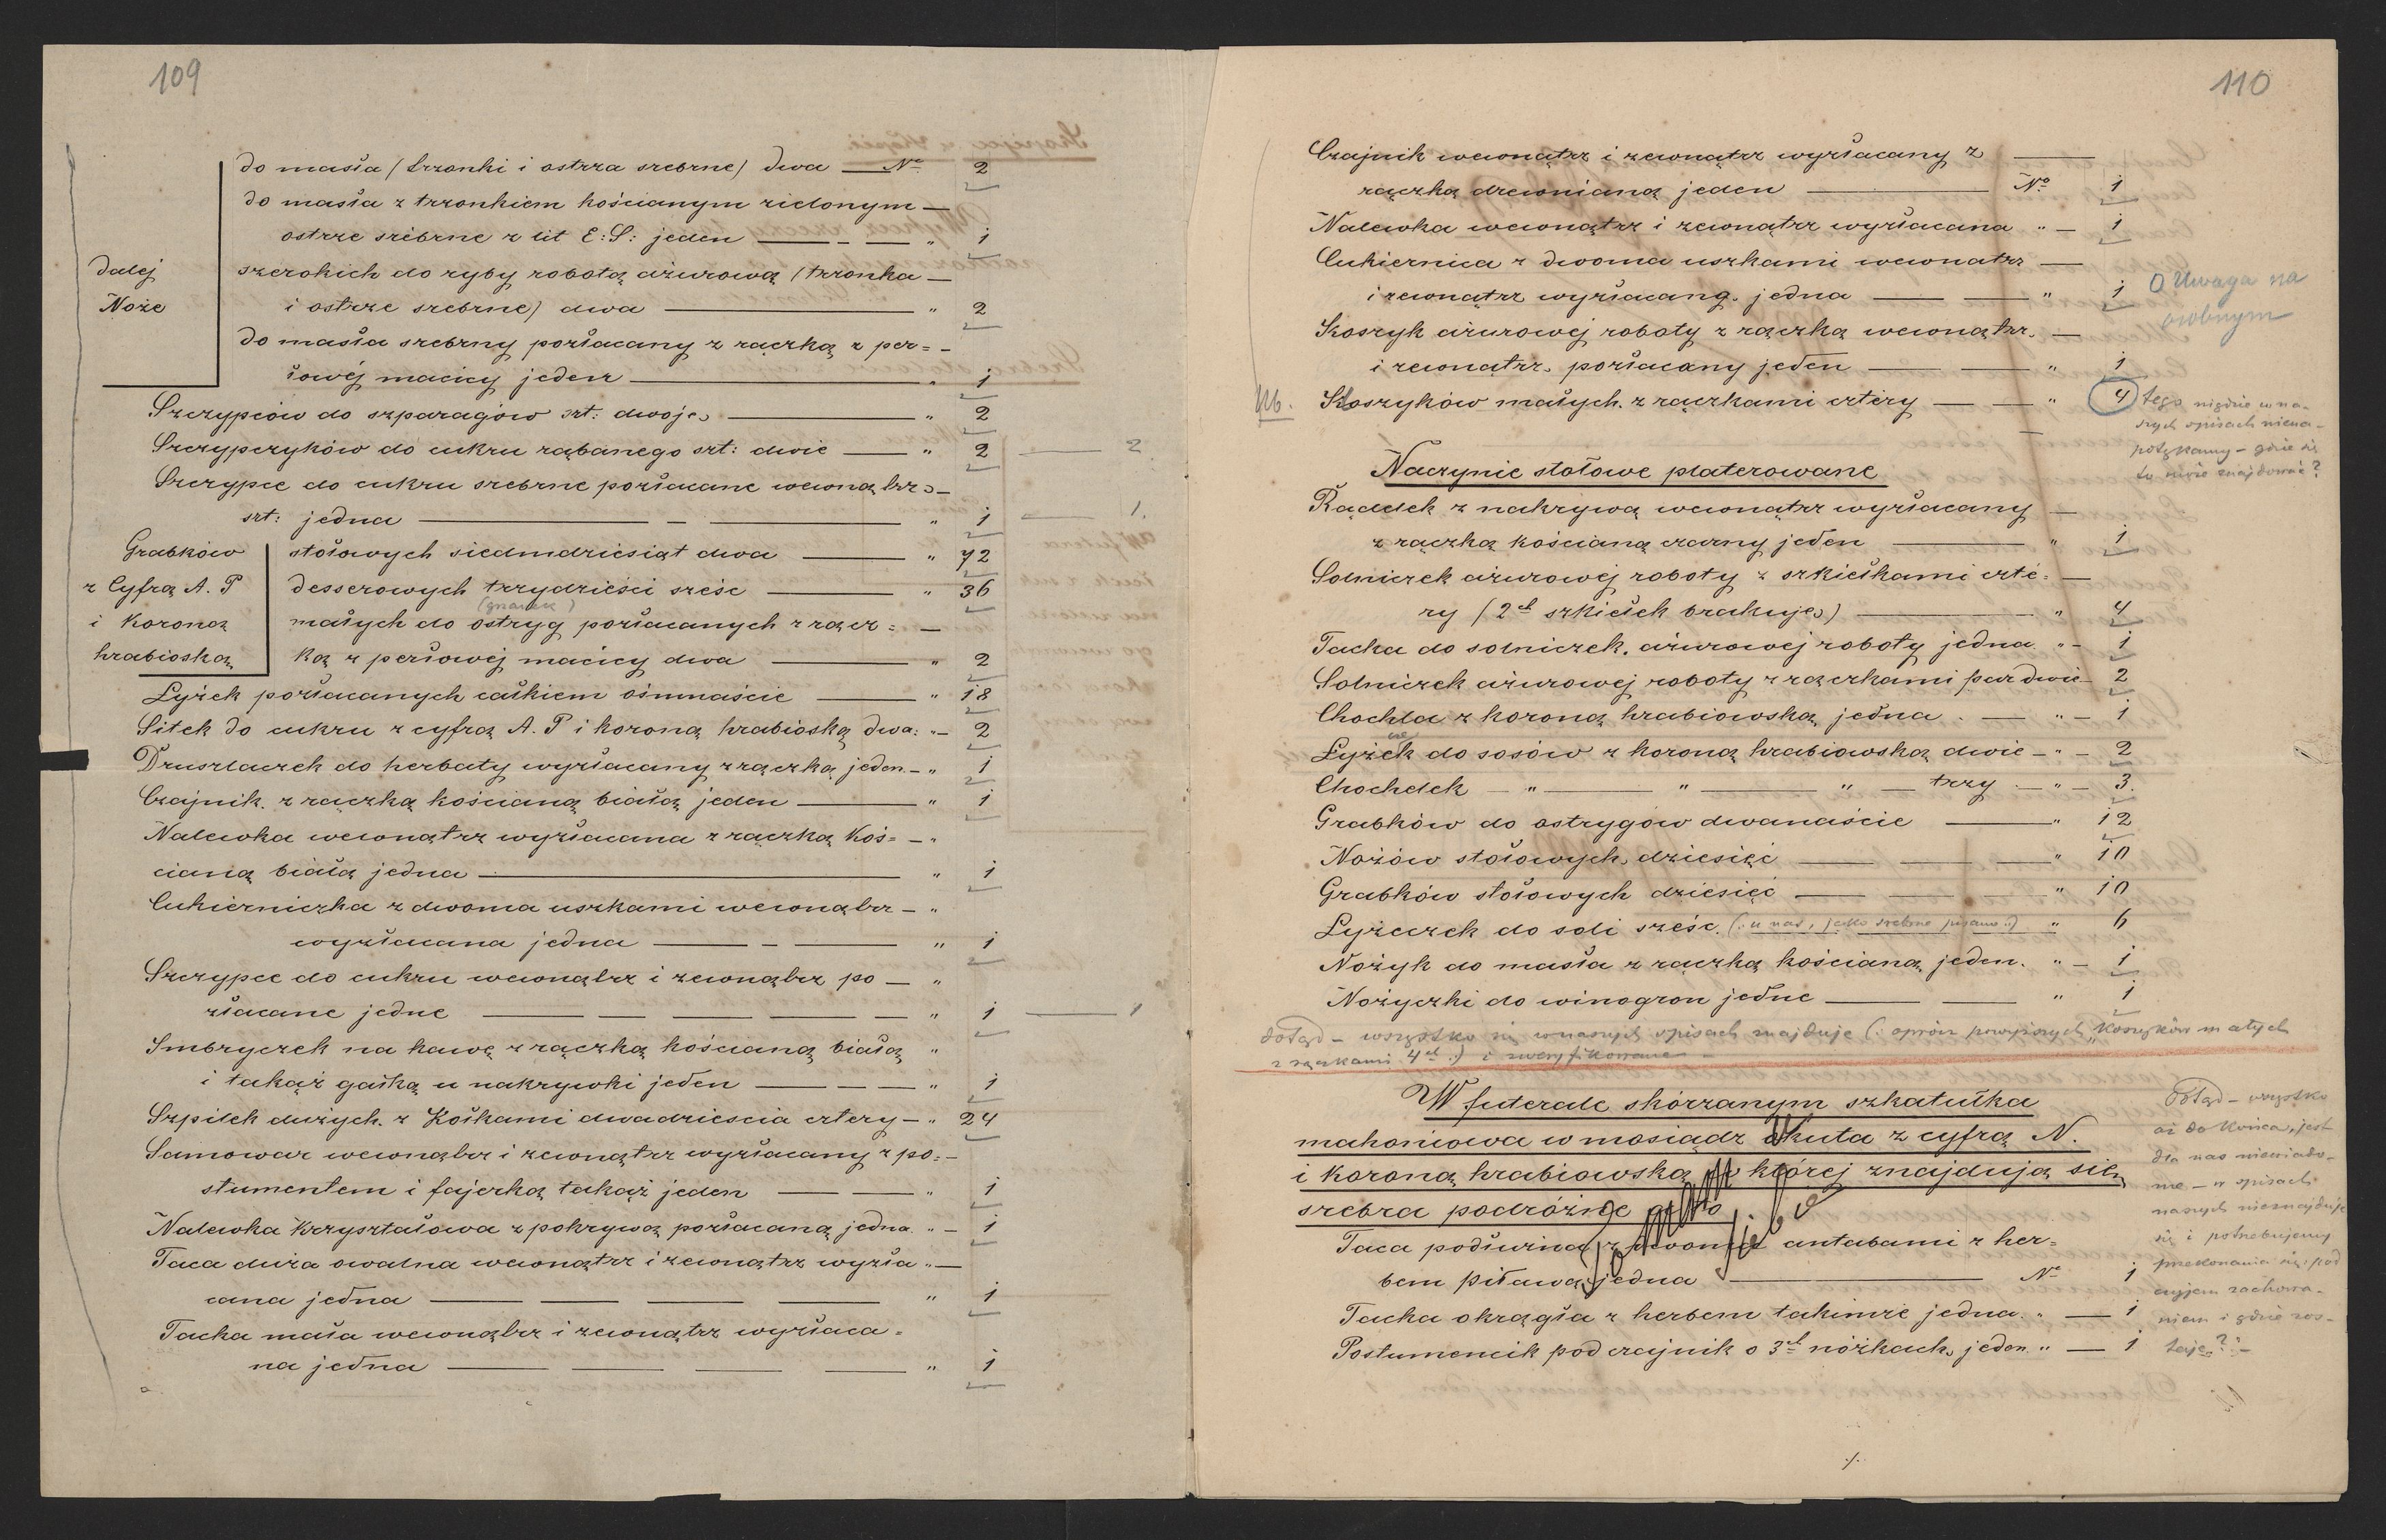 109
do masła (trzonki i ostrza srebrne) dwa — No 2
do masła z trzonkiem kościanym zielonym —
ostrze srébrne z lit E: S: jeden — „ 1
dalej
Noże
szerokich do ryby robotą ażurową (trzonka —
i ostrze srebrne) dwa — „ 2
do masła srebrny pozłacany z rączką z per= -
łowéj macicy jeden — „ 1
Szczypców do szparagów szt: dwoje — „ 2
Szczypczyków do cukru rąbanego szt: dwie — „ 2 — 2
Szczypce do cukru srebrne pozłacane wewnątrz —
szt: jedna — „ 1 — 1.
Grabków
z Cyfrą A. P
i Koroną
hrabioską
stołowych siedmdziesiąt dwa — „ 72
desserowych trzydzieści sześć — „ 36
małych do ostryg pozłacanych z rącz= —
ką z perłowej macicy dwa — „ 2
Łyżek pozłacanych całkiem ośmnaście — „ 18
Sitek do cukru z cyfrą A. P i koroną hrabioską dwa: „ — 2
Druszlaczek do herbaty wyzłacany z rączką jeden — „ 1
Czajnik z rączką kościaną białą jeden — „ 1
Nalewka wewnątrz wyzłacana z rączką koś= — „
cianą białą jedna — „ 1
Cukierniczka z dwoma uszkami wewnątrz — „
wyzłacana jedna — „ 1
Szczypce do cukru wewnątrz i zewnątrz po — „
złacane jedne — „ 1 — 1
Imbryczek na kawę z rączką kościaną białą „
i takąż gałką u nakrywki jeden — „ 1
Szpilek dużych z Kółkami dwadzieścia cztery — „ 24
Samowar wewnątrz i zewnątrz wyzłacany z po= —
stumentem i fajerką takąż jeden — „ 1
Nalewka Krzyształowa z pokrywą pozłacaną jedna „ — 1
Taca duża owalna wewnątrz i zewnątrz wyzła „ —
cana jedna — „ 1
Tacka mała wewnątrz i zewnątrz wyzłaca=
na jedna — „ 1
110
Czajnik wewnątrz i zewnątrz wyzłacany z —
rączką drewnianą jeden — No 1
Nalewka wewnątrz i zewnątrz wyzłacana „ — 1
Cukiernica z dwoma uszkami wewnatrz —
i zewnątrz wyzłacaną jedna — „ 1
O Uwaga na
osobnym
Koszyk ażurowej roboty z rączką wewnątrz —
i zewnątrz pozłacany jeden — „ 1
Nb. Koszyków małych z rączkami cztéry — „ 4
tego nigdzie w na-
szych spisach niena-
potykamy – gdzie się
to może znajdować?
Naczynie stołowe platerowane
Rądelek z nakrywą wewnątrz wyzłacany —
z rączką kościaną czarny jeden — „ 1
Solniczek ażurowéj roboty z szkiełkami czté= —
ry (2ch szkiełek brakuje) — „ 4
Tacka do solniczek ażurowej roboty jedna „ - 1
Solniczek ażurowej roboty z rączkami par dwie — 2
Chochla z koroną hrabiowską jedna — „ — 1
Łyżek do sosów z koroną hrabiowską dwie — „ — 2
Chochelek — „ — „ — trzy — „ — 3.
Grabków do ostrygów dwanaście — „ 12
Nożów stołowych dziesięć — „ 10
Grabków stołowych dziesięć — „ 10
Łyżeczek do soli sześć (: u nas, jako srebrne pisano :) „ 6
Nożyk do masła z rączką kościaną jeden. „ — 1
Nożyczki do winogron jedne — „ 1
dotąd – wszystko się w naszych spisach znajduje (: oprócz powyższych „Koszyków małych
z rączkami 4ch :) i zweryfikowane –
W futerale skórzanym szkatułka
mahoniowa w mosiądz okuta z cyfrą N.
i koroną hrabiowską w której znajdują się
srebra podróżne
Taca podłużna z dwoma antabami z her=
bem Piława jedna — No 1
Tacka okrągła z herbem takimże jedna „ — 1
Postumencik pod czajnik o 3ch nóżkach jeden „ — 1
Odtąd – wszystko
aż do Końca, jest
dla nas niewiado-
me – w spisach
naszych nieznajduje
się i potrzebujemy
przekonania się, pod
czyjem zachowa-
niem i gdzie zos-
taje? –
./.